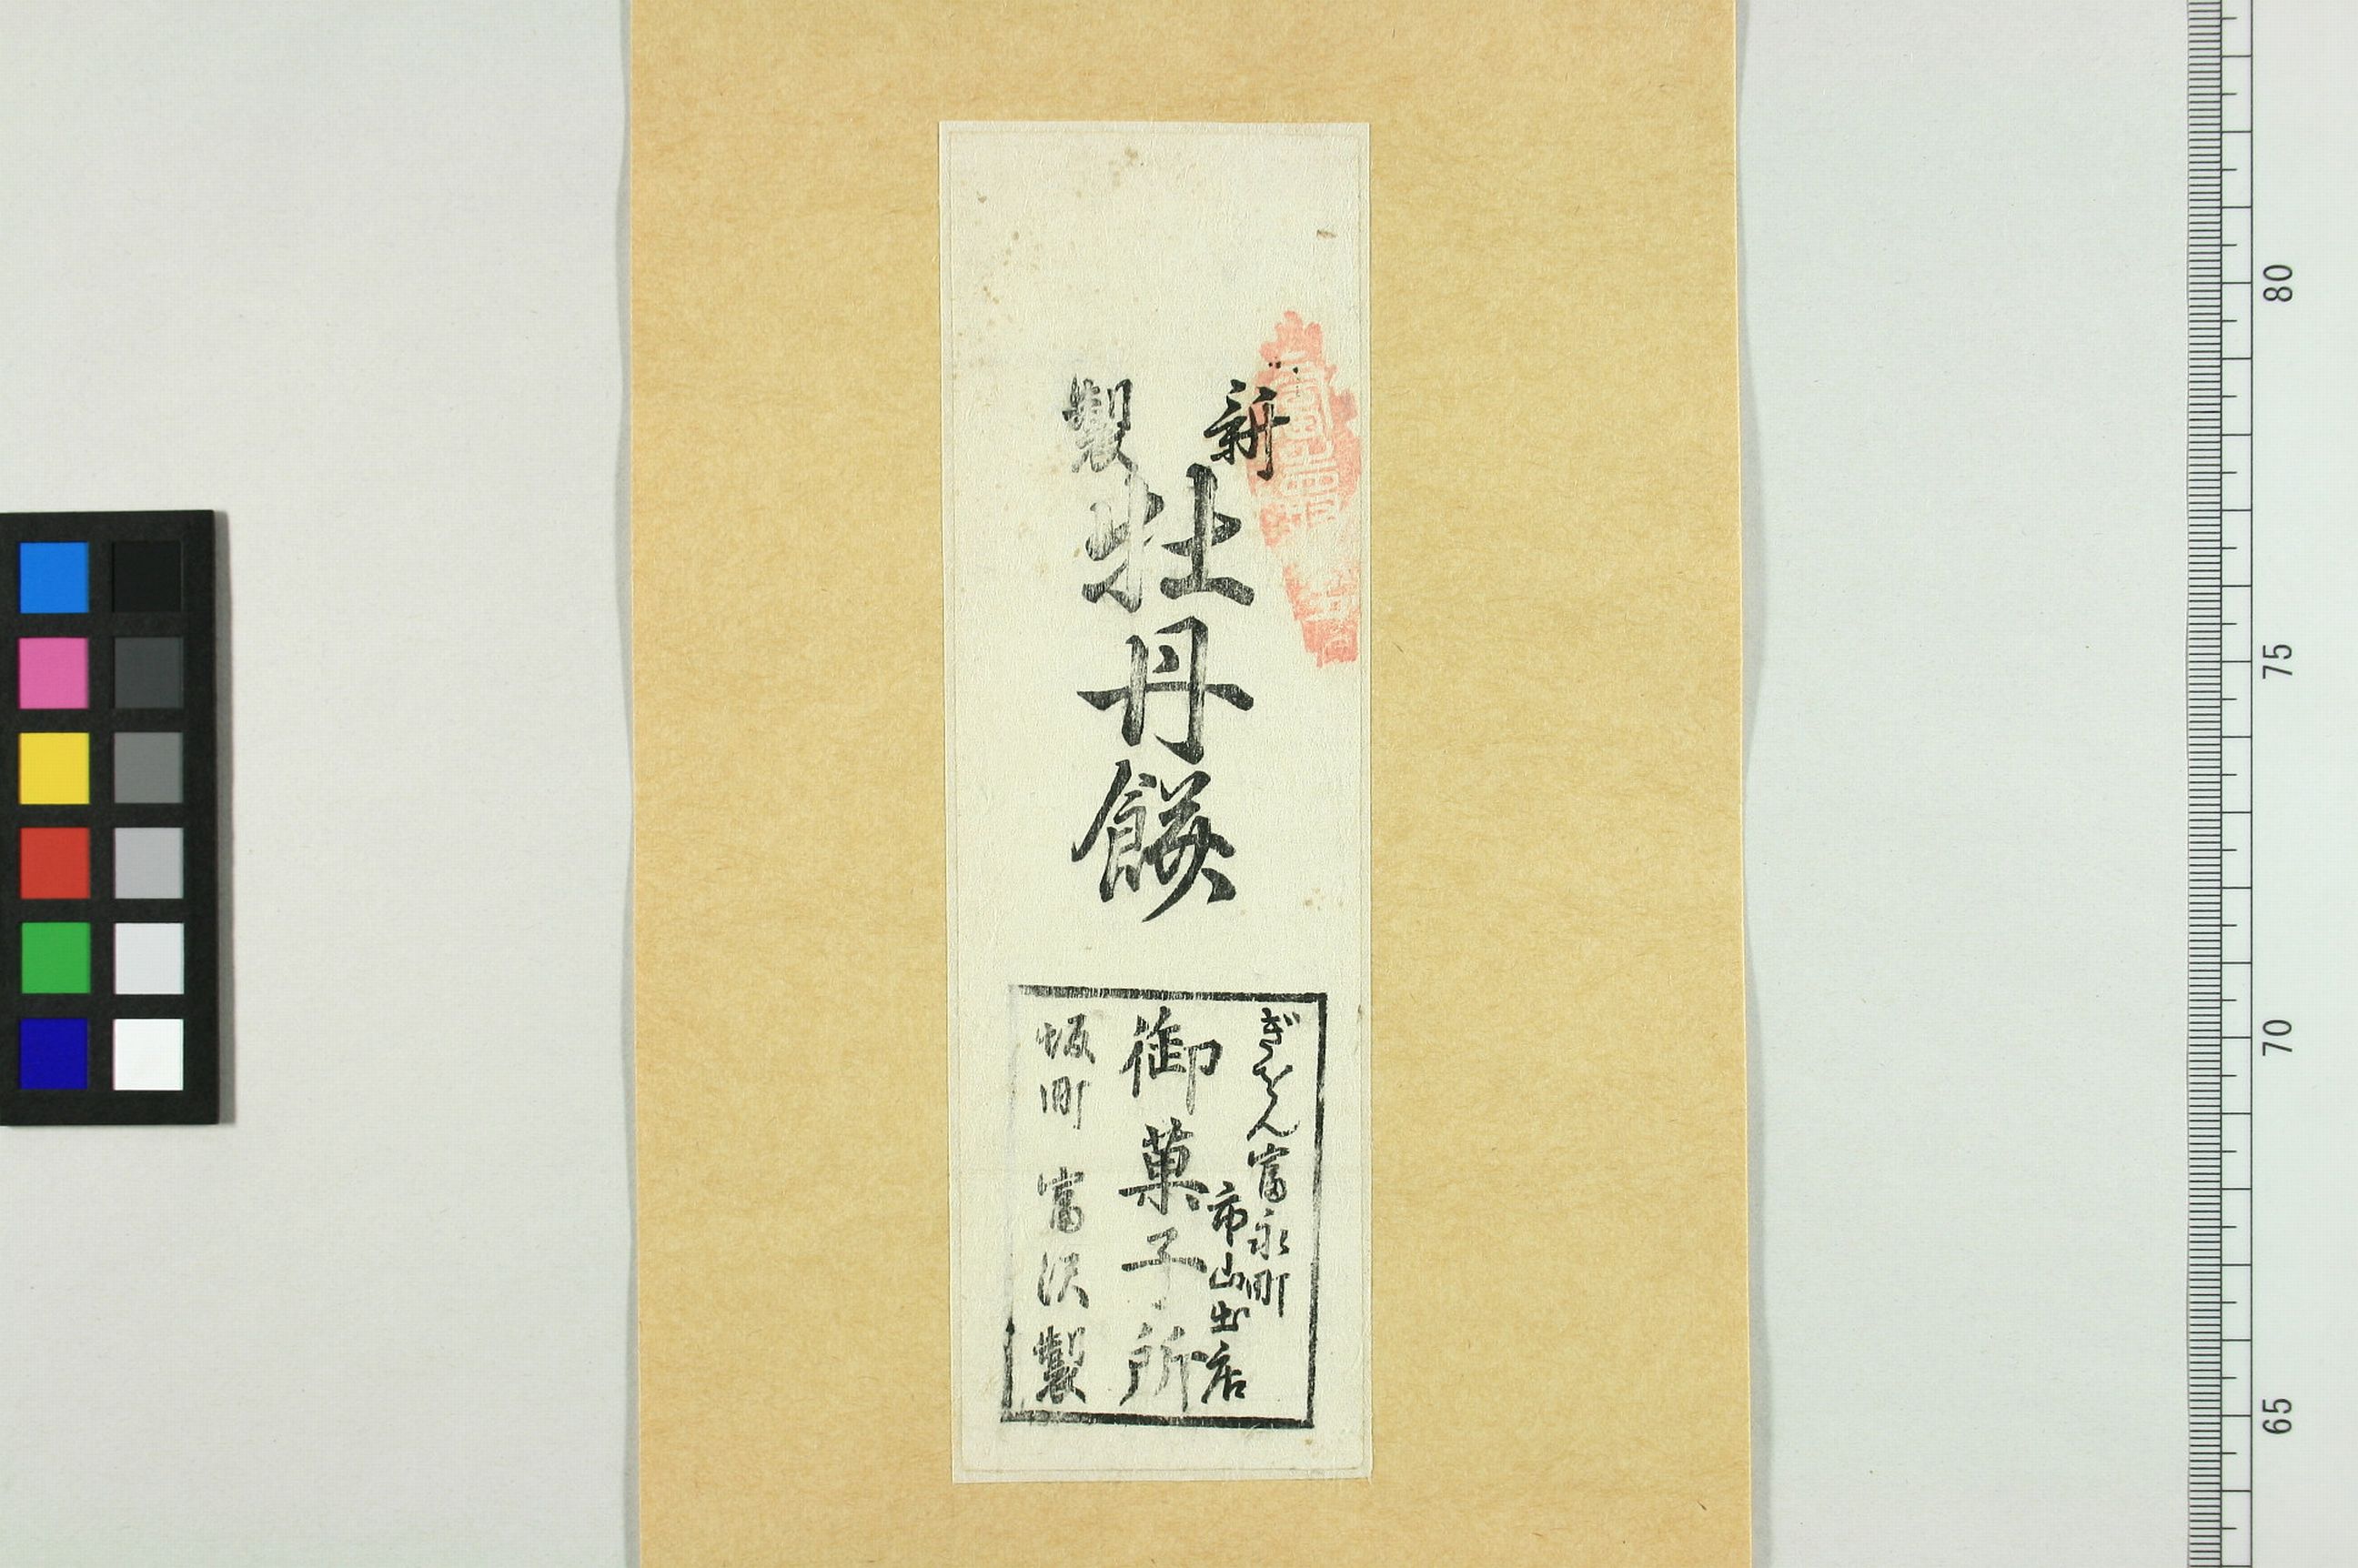 新製
牡丹餅
ぎをん富永町
市山出店
御菓子所
坂町 富沢製
80
75
70
65